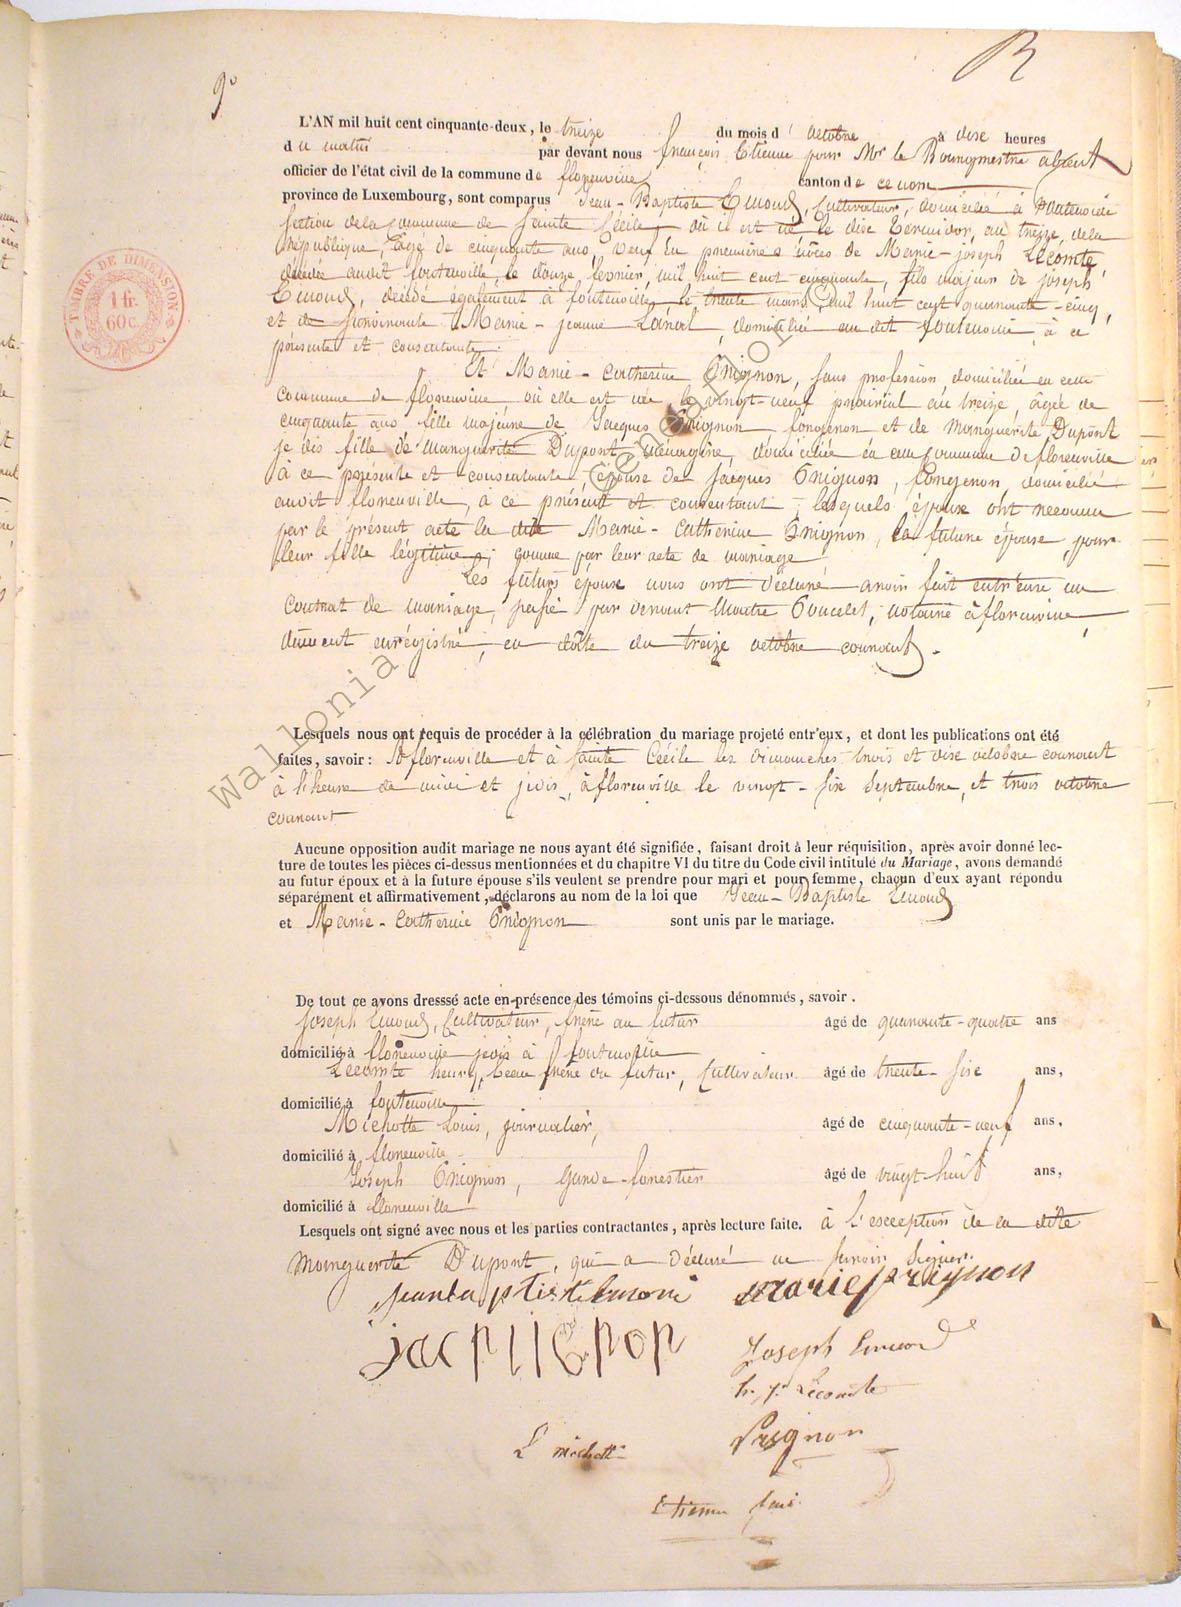 9°
L'AN mil huit cent cinquante-deux, le treize du mois d' octobre à dixe heures
du matin par devant nous françois Etienne pour Mr le Bourgmestre absent
officier de l'état civil de la commune de florenville canton de ce nom
province de Luxembourg, sont comparus Jean-Baptiste Emond, Cultivateur, domicilié à fontenoille
section dela commune de Sainte Cécile, où il est né le dixe termidor, an treize, dela
république, âgé de cinquante ans veuf en première noces de Marie-joseph Lecomte,
décédée audit fontenoille, le douze février, mil huit cent cinquante, fils majeur de joseph
Emond, décédé également à fontenoille le trente mars, mil huit cent quarante-cinq,
et de survivante Marie-jeanne Lanal, domiciliée au dit fontenoille, à ce
présente et consentante.
Et Marie-Catherine Grignon, sans profession, domiciliée en cette
commune de florenville où elle est née le vingt-neuf prairial an treize, âgée de
cinquante ans fille majeure de Jacques Grignon forgeron et de Marguerite Dupont
je dis fille de marguerite Dupont ménagère, domiciliée en cette commune de florenville
à ce présente et consentante, épouse de Jacques Grignon, forgeron, domicilié
audit florenville, à ce présent et consentant, lesquels époux ont reconnu
par le présent acte la dite Marie-Catherine Grignon, la future épouse, pour
leur fille légitime, comme par leur acte de mariage
Les futurs époux nous ont déclaré avoir fait entr'eux un
contrat de mariage, passé par devant Maitre Goucelet, notaire à florenville,
dûment enrégistré, en date du treize octobre courant.
Lesquels nous ont requis de procéder à la célébration du mariage projeté entr'eux, et dont les publications ont été
faites, savoir: A florenville et à Sainte Cécile les dimanches trois et dixe octobre courant
à l'heure de midi et jedis, à florenville le vingt-six septembre, et trois octobre
courant
Aucune opposition audit mariage ne nous ayant été signifiée, faisant droit à leur réquisition, après avoir donné lec-
ture de toutes les pièces ci-dessus mentionnées et du chapitre VI du titre du Code civil intitulé du Mariage, avons demandé
au futur époux et à la future épouse s'ils veulent se prendre pour mari et pour femme, chacun d'eux ayant répondu
séparément et affirmativement, déclarons au nom de la loi que Jean-Baptiste Emond
et Marie-Catherine Grignon sont unis par le mariage.
De tout ce avons dresssé acte en présence des témoins ci-dessous dénommés, savoir.
Joseph Emond, Cultivateur, frère au futur âgé de quarante-quatre ans
domicilié à florenville jedis à fontenoille
Lecomte henry, beau frère du futur, Cultivateur âgé de trente-sixe ans,
domicilié à fontenoille
Michotte Louis, journalier, âgé de cinquante-neuf ans,
domicilié à florenville
Joseph Grignon, garde-forestier âgé de vingt-huit ans,
domicilié à florenville
Lesquels ont signé avec nous et les parties contractantes, après lecture faite. à l'exception de la dite
Marguerite Dupont, qui a déclaré ne savoir signer.
jean baptiste Emond marie grignon
Joseph Emond
h. j. Lecomte
Grignon
L michotte
Etienne
TIMBRE DE DIMENSION
1 fr.
60 c.
Wallonia Genearlon ©